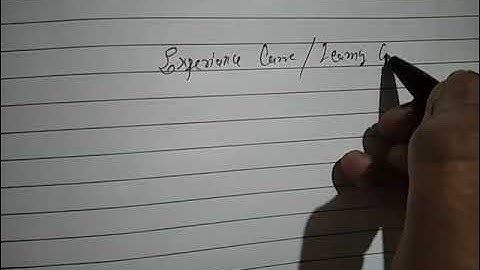 Experiance Curve / Learning C